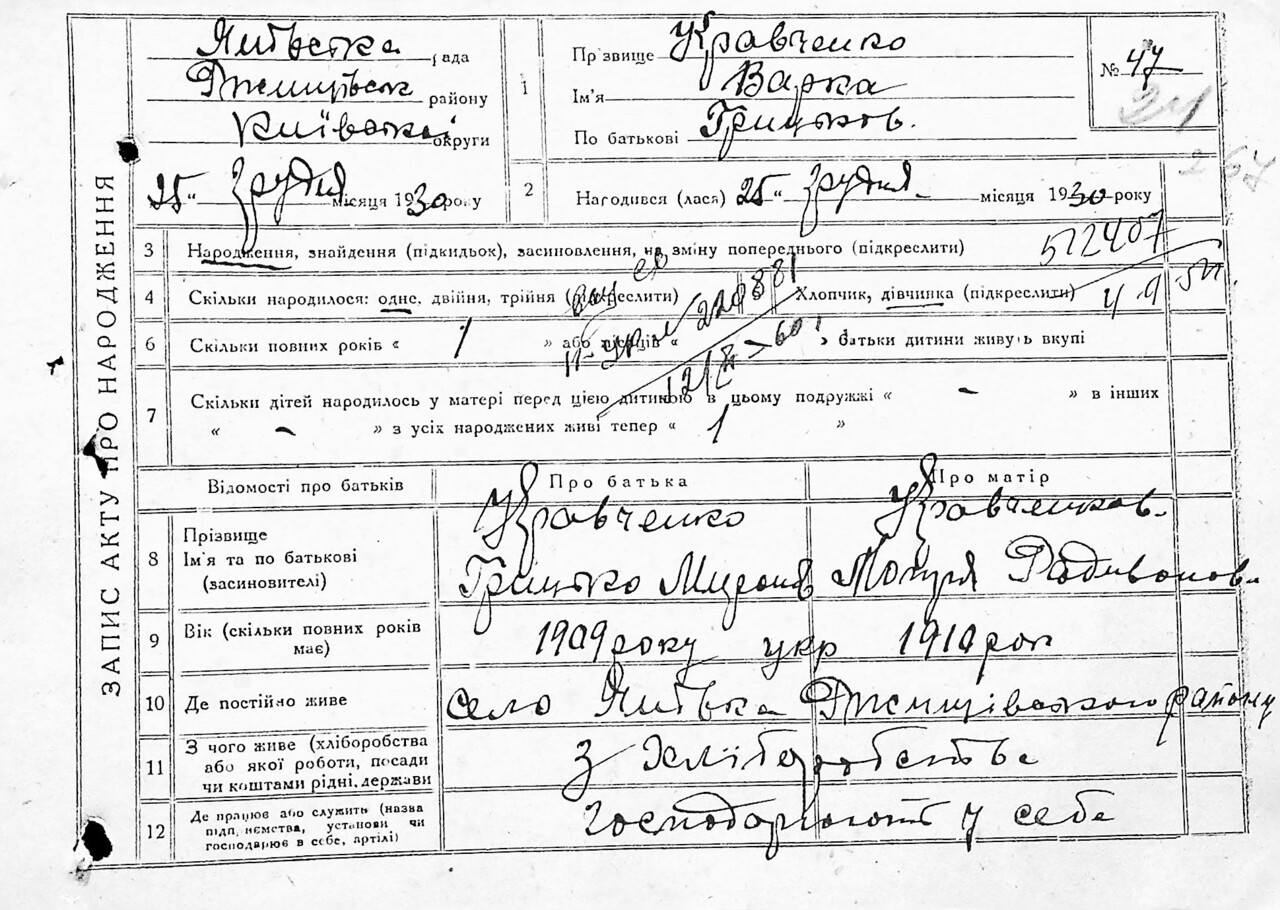 ЗАПИС АКТУ ПРО НАРОДЖЕННЯ
рада
району
Київської округи
25 " грудня місяця 1930 року
1
Пр'звище Кравченко
Ім'я Варка
По батькові Грицьков.
№ 47
24
267
2
Нагодився (лася) 25 " грудня месяця 1930 року
3 Народження, знайдення (підкидьок), засиновлення, на зміну попереднього (підкреслити)
522407
4 Скільки народилося: одне, двійня, трійня (підкреслити) 5 Хлопчик, дівчинка (підкреслити)
6 Скільки повних років « 1 » або місяців « » батьки дитини живуть вкупі
7 Скільки дітей народилось у матері перед цією дитиною в цьому подружжі « – » в інших
« – » з усіх народжених живі тепер « 1 »
Відомості про батьків Про батька Про матір
8 Прізвище Ім'я та по батькові (засиновителі)
Кравченко Кравченков.
Грицько Миронів Мотря Радивонова
9 Вік (скільки повних років має) 1909 року укр 1910 рок
10 Де постійно живе село району
11 З чого живе (хліборобства або якої роботи, посади чи коштами рідні, держави
з хліборобства
12 Де працює або служить (назва підп,иємства, установи чи господарює в себе, артілі)
господарюють у себе